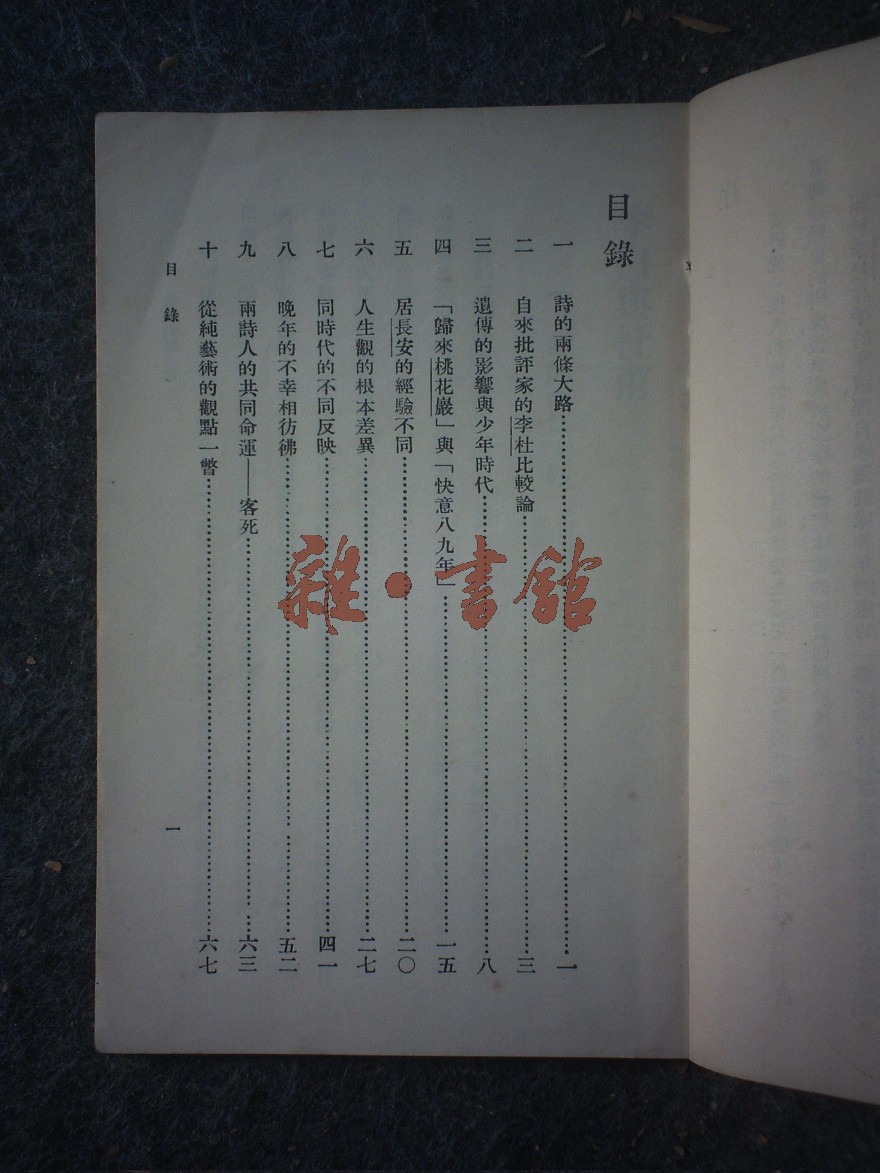 目錄
一 詩的兩條大路……一
二 自來批評家的李杜比較論……三
三 遺傳的影響與少年時代……八
四 「歸來桃花巖」與「快意八九年」……一五
五 居長安的經驗不同……二〇
六 人生觀的根本差異……二七
七 同時代的不同反映……四一
八 晚年的不幸相彷彿……五二
九 兩詩人的共同命運——客死……六三
十 從純藝術的觀點一瞥……六七
目錄
一
雜·書館